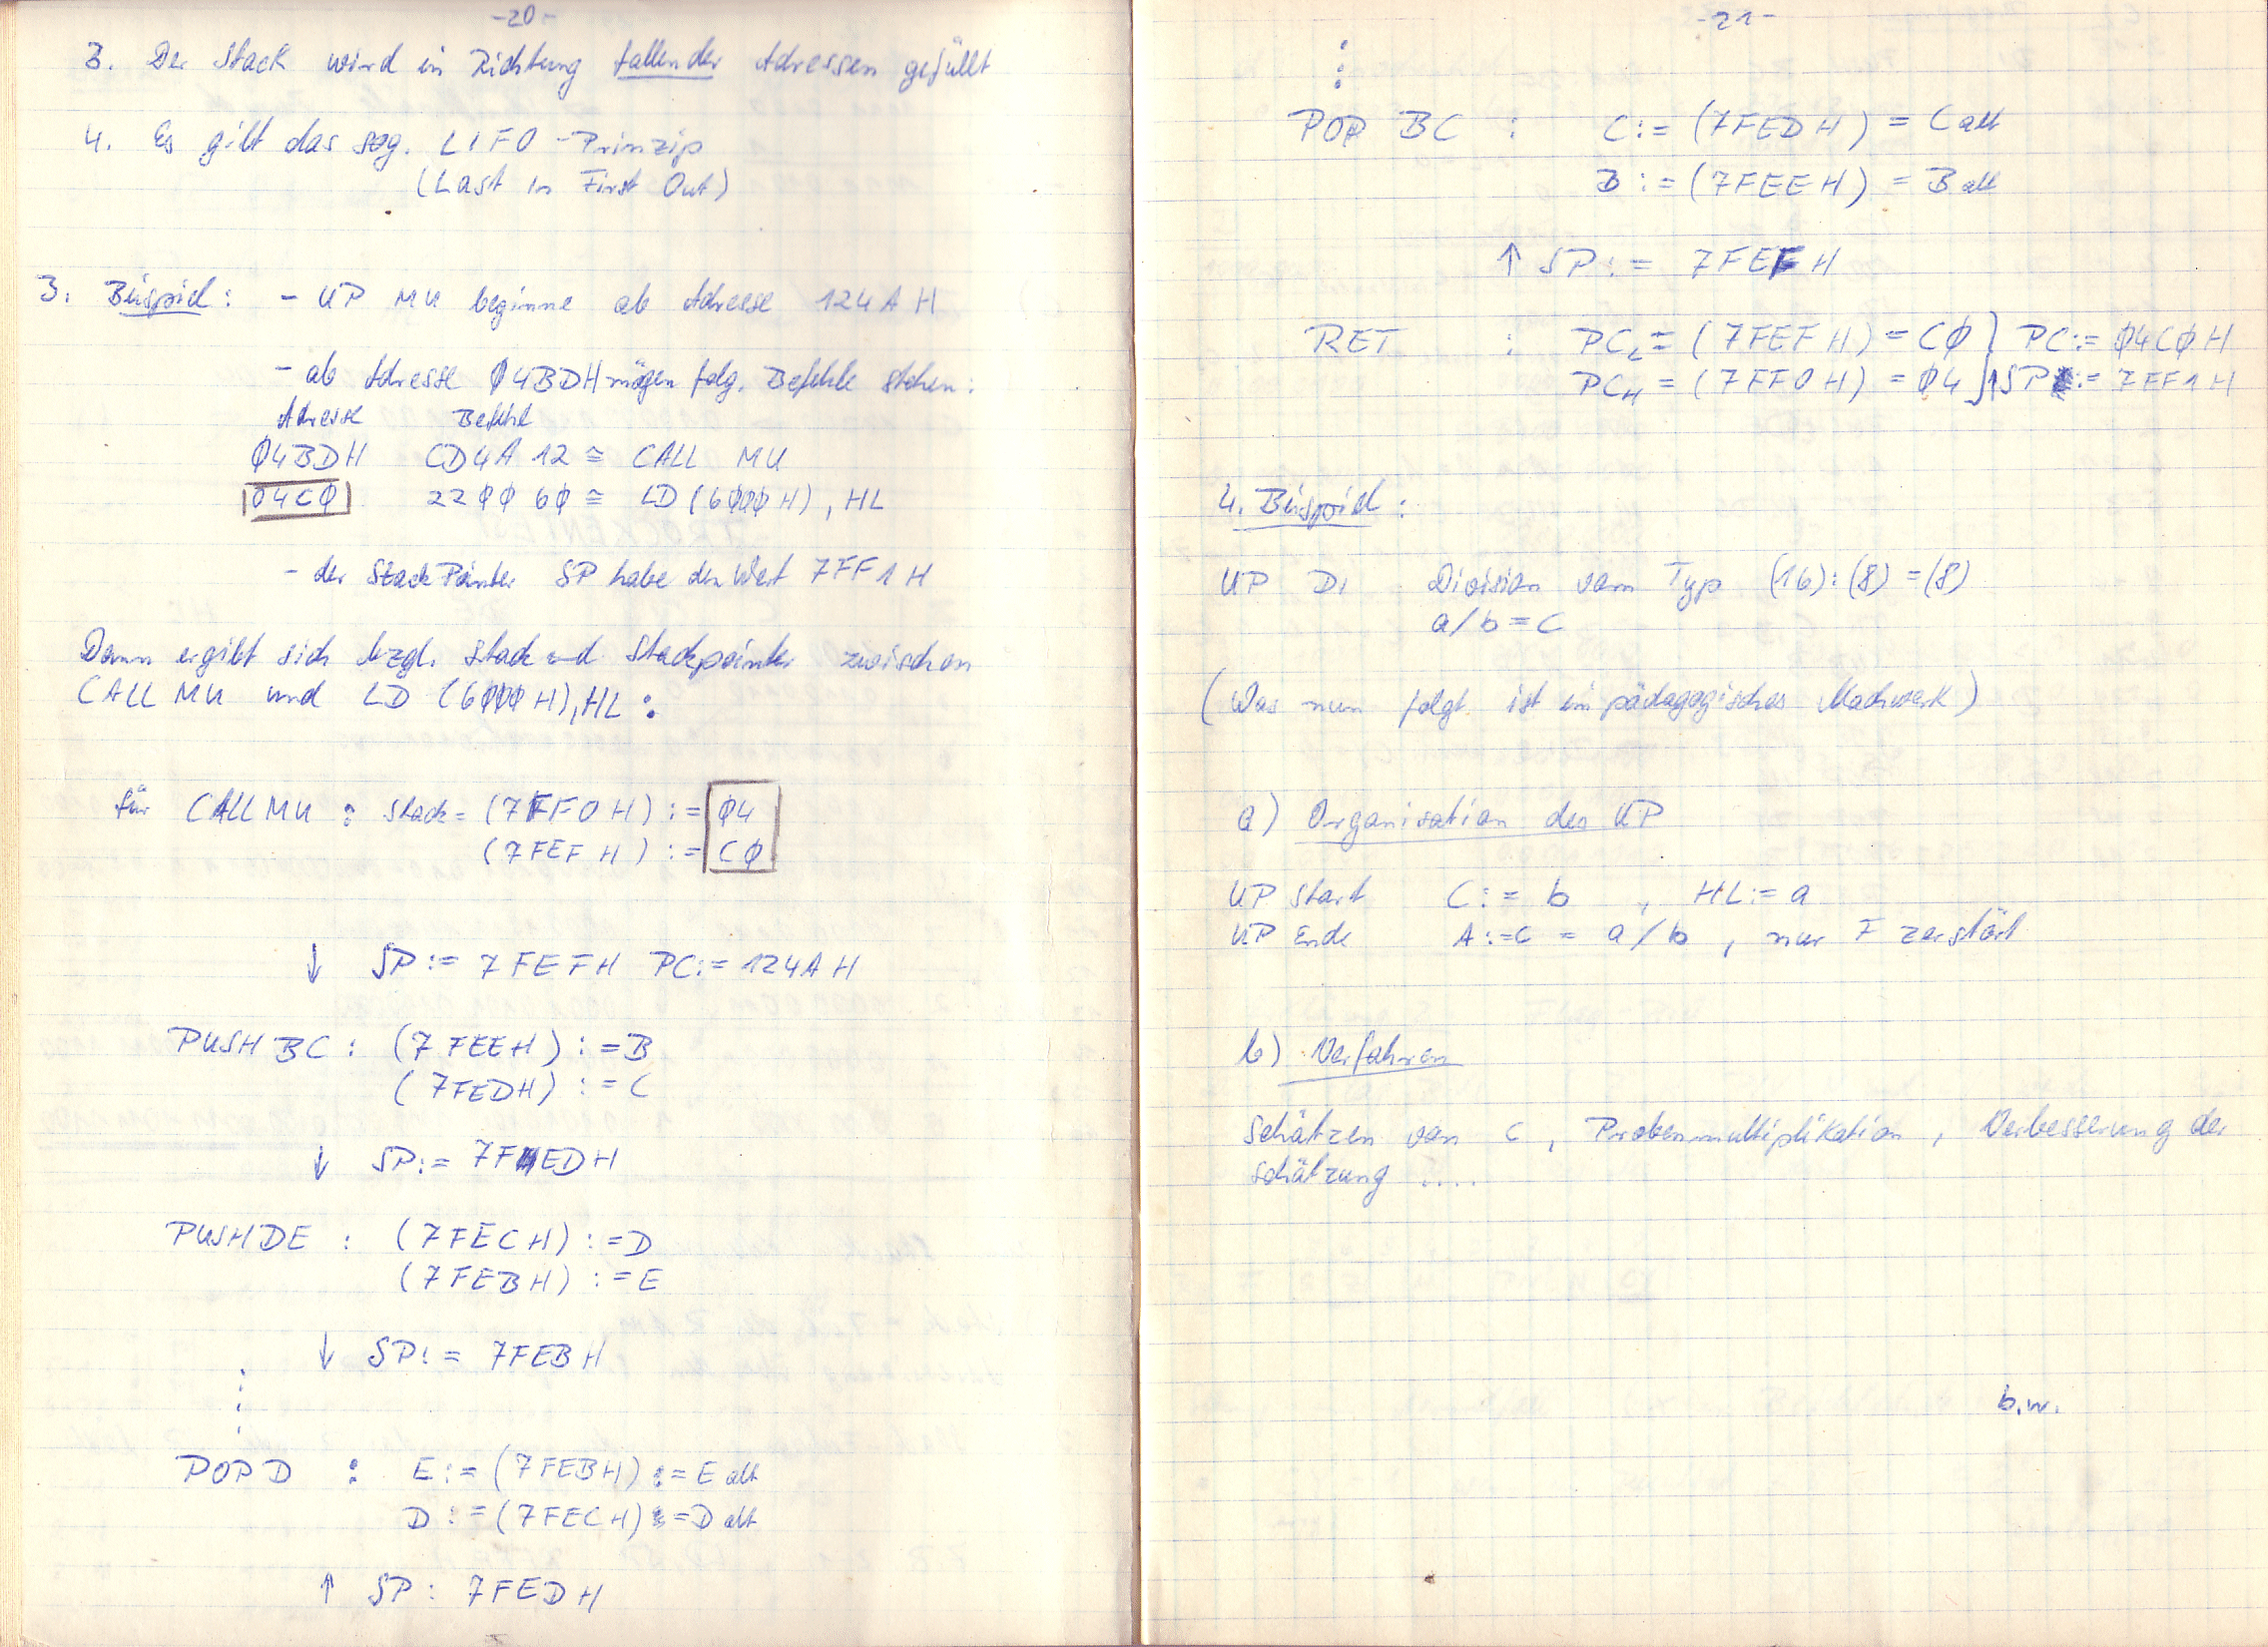 -20-
3. Der Stack wird in Richtung fallender Adressen gefüllt
4. Es gilt das sog. LIFO-Prinzip
(Last in First Out)
3. Beispiel: - UP MU beginne ab Adresse 124A H
- ab Adresse Ø4BDH mögen folg. Befehle stehen:
Adresse Befehl
Ø4BDH CD4A 12 ≙ CALL MU
04CØ 22ØØ 6Ø ≙ LD (6ØØØH), HL
- der StackPointer SP habe den Wert 7FF1H
Dann ergibt sich bzgl. Stack und Stackpointer zwischen
CALL MU und LD (6ØØØH), HL :
für CALL MU : Stack = (7FF0H) := Ø4
(7FEFH) := CØ
↓ SP := 7FEFH PC := 124AH
PUSH BC : (7FEEH) := B
(7FEDH) := C
↓ SP := 7FEDH
PUSH DE : (7FECH) := D
(7FEBH) := E
↓ SP := 7FEBH
POP D : E := (7FEBH) := E alt
D := (7FECH) := D alt
↑ SP : 7FEDH
-21-
POP BC : C := (7FEDH) = C alt
B := (7FEEH) = B alt
↑ SP := 7FEFH
RET : PC_L = (7FEFH) = CØ } PC := Ø4CØH
PC_H = (7FF0H) = Ø4 } ↑SP := 7FF1H
4. Beispiel :
UP DI Division vom Typ (16):(8) = (8)
a/b = C
(Was nun folgt ist ein pädagogisches Machwerk)
a) Organisation des UP
UP Start C := b , HL := a
UP Ende A := c = a/b , nur F zerstört
b) Verfahren
Schätzen von C , Probenmultiplikation , Verbesserung der
Schätzung ....
b.w.